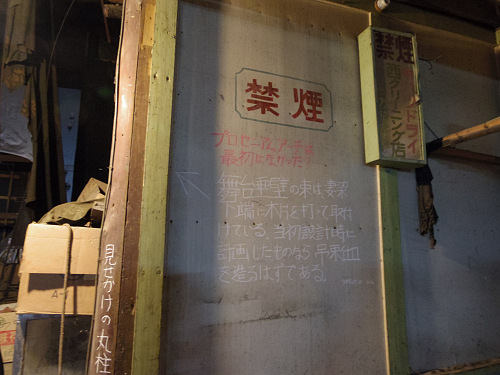 禁煙
プロセニアムアーチは
最初はなかった?
舞台垂壁の束は妻梁
端に木けを打って取付
けている。当初設計時に
計画したものなら
を造るはずである。
見せかけの丸柱
禁煙
ドライ
クリーニング店